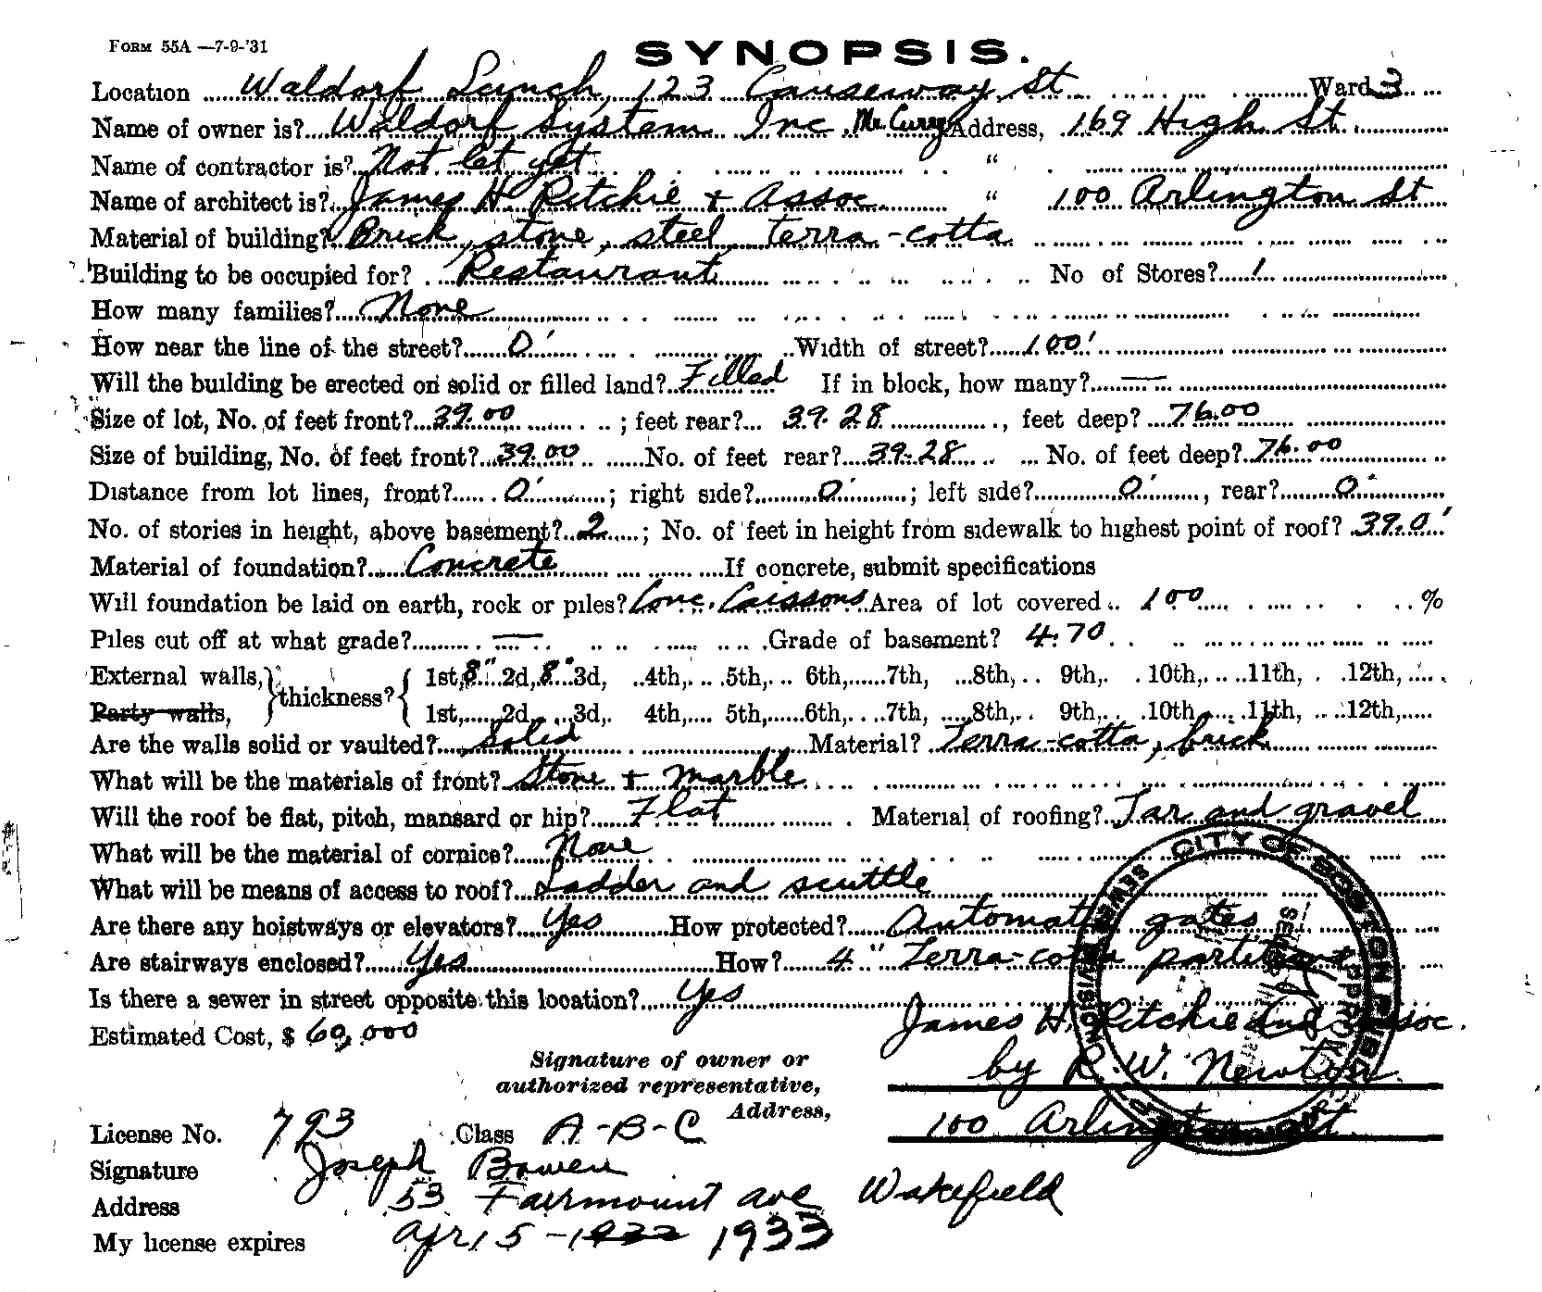 FORM 55A —7-9-'31
SYNOPSIS.
Location Waldorf Lunch, 123 Causeway St Ward 3
Name of owner is? Waldorf System Inc Address, 169 High St
Name of contractor is? Not let yet "
Name of architect is? James H Ritchie + Assoc " 100 Arlington St
Material of building? Brick, stone, steel, terra-cotta
Building to be occupied for? Restaurant No of Stores? 1
How many families? None
How near the line of the street? 0' Width of street? 100'
Will the building be erected on solid or filled land? Filled If in block, how many? —
Size of lot, No. of feet front? 39.00 ; feet rear? 39.28 , feet deep? 76.00
Size of building, No. of feet front? 39.00 No. of feet rear? 39.28 No. of feet deep? 76.00
Distance from lot lines, front? 0' ; right side? 0' ; left side? 0' , rear? 0'
No. of stories in height, above basement? 2 ; No. of feet in height from sidewalk to highest point of roof? 39.0'
Material of foundation? Concrete If concrete, submit specifications
Will foundation be laid on earth, rock or piles? Conc. Caissons Area of lot covered 100 %
Piles cut off at what grade? — Grade of basement? 4.70
External walls, thickness? 1st, 8" 2d, 8" 3d, 4th, 5th, 6th, 7th, 8th, 9th, 10th, 11th, 12th,
Party walls, 1st, 2d, 3d, 4th, 5th, 6th, 7th, 8th, 9th, 10th, 11th, 12th,
Are the walls solid or vaulted? Solid Material? Terra-cotta, brick
What will be the materials of front? Stone + marble
Will the roof be flat, pitch, mansard or hip? Flat Material of roofing? Tar and gravel
What will be the material of cornice? None
What will be means of access to roof? Ladder and scuttle
Are there any hoistways or elevators? Yes How protected? Automatic gates
Are stairways enclosed? Yes How? 4" Terra-cotta partitions
Is there a sewer in street opposite this location? Yes
James H. Ritchie and Assoc.
Estimated Cost, $ 60,000
Signature of owner or
authorized representative, by R. W. Newton.
Address, 100 Arlington St.
CITY OF BOSTON
SEWER DIVISION
License No. 793 Class A-B-C
Signature Joseph Bowen
Address 53 Fairmount ave Wakefield
My license expires Apr 15 - 1932 1933